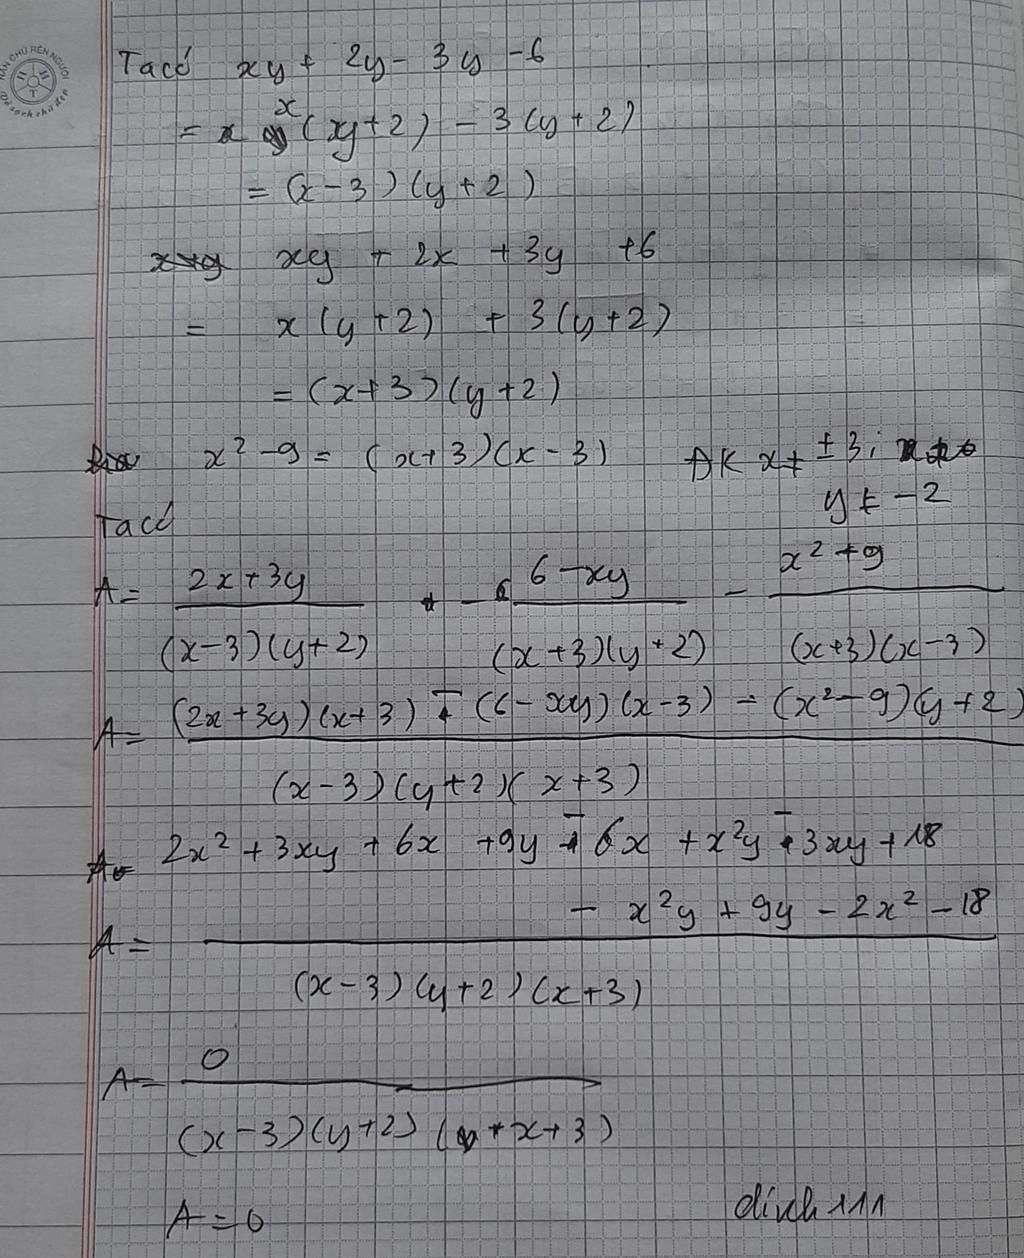 Ta có xy + 2y - 3y - 6
= x (xy+2) - 3(y+2)
= (x-3)(y+2)
xy + 2x + 3y + 6
= x(y+2) + 3(y+2)
= (x+3)(y+2)
x² - 9 = (x+3)(x-3) ĐK x ≠ ±3;
y ≠ -2
Ta có
A = 2x+3y / (x-3)(y+2) - 6-xy / (x+3)(y+2) - x²+9 / (x+3)(x-3)
A = (2x+3y)(x+3) - (6-xy)(x-3) - (x²-9)(y+2) / (x-3)(y+2)(x+3)
2x² + 3xy + 6x + 9y - 6x + x²y - 3xy + 18
- x²y + 9y - 2x² - 18
A = / (x-3)(y+2)(x+3)
A = 0 / (x-3)(y+2)(x+3)
A = 0